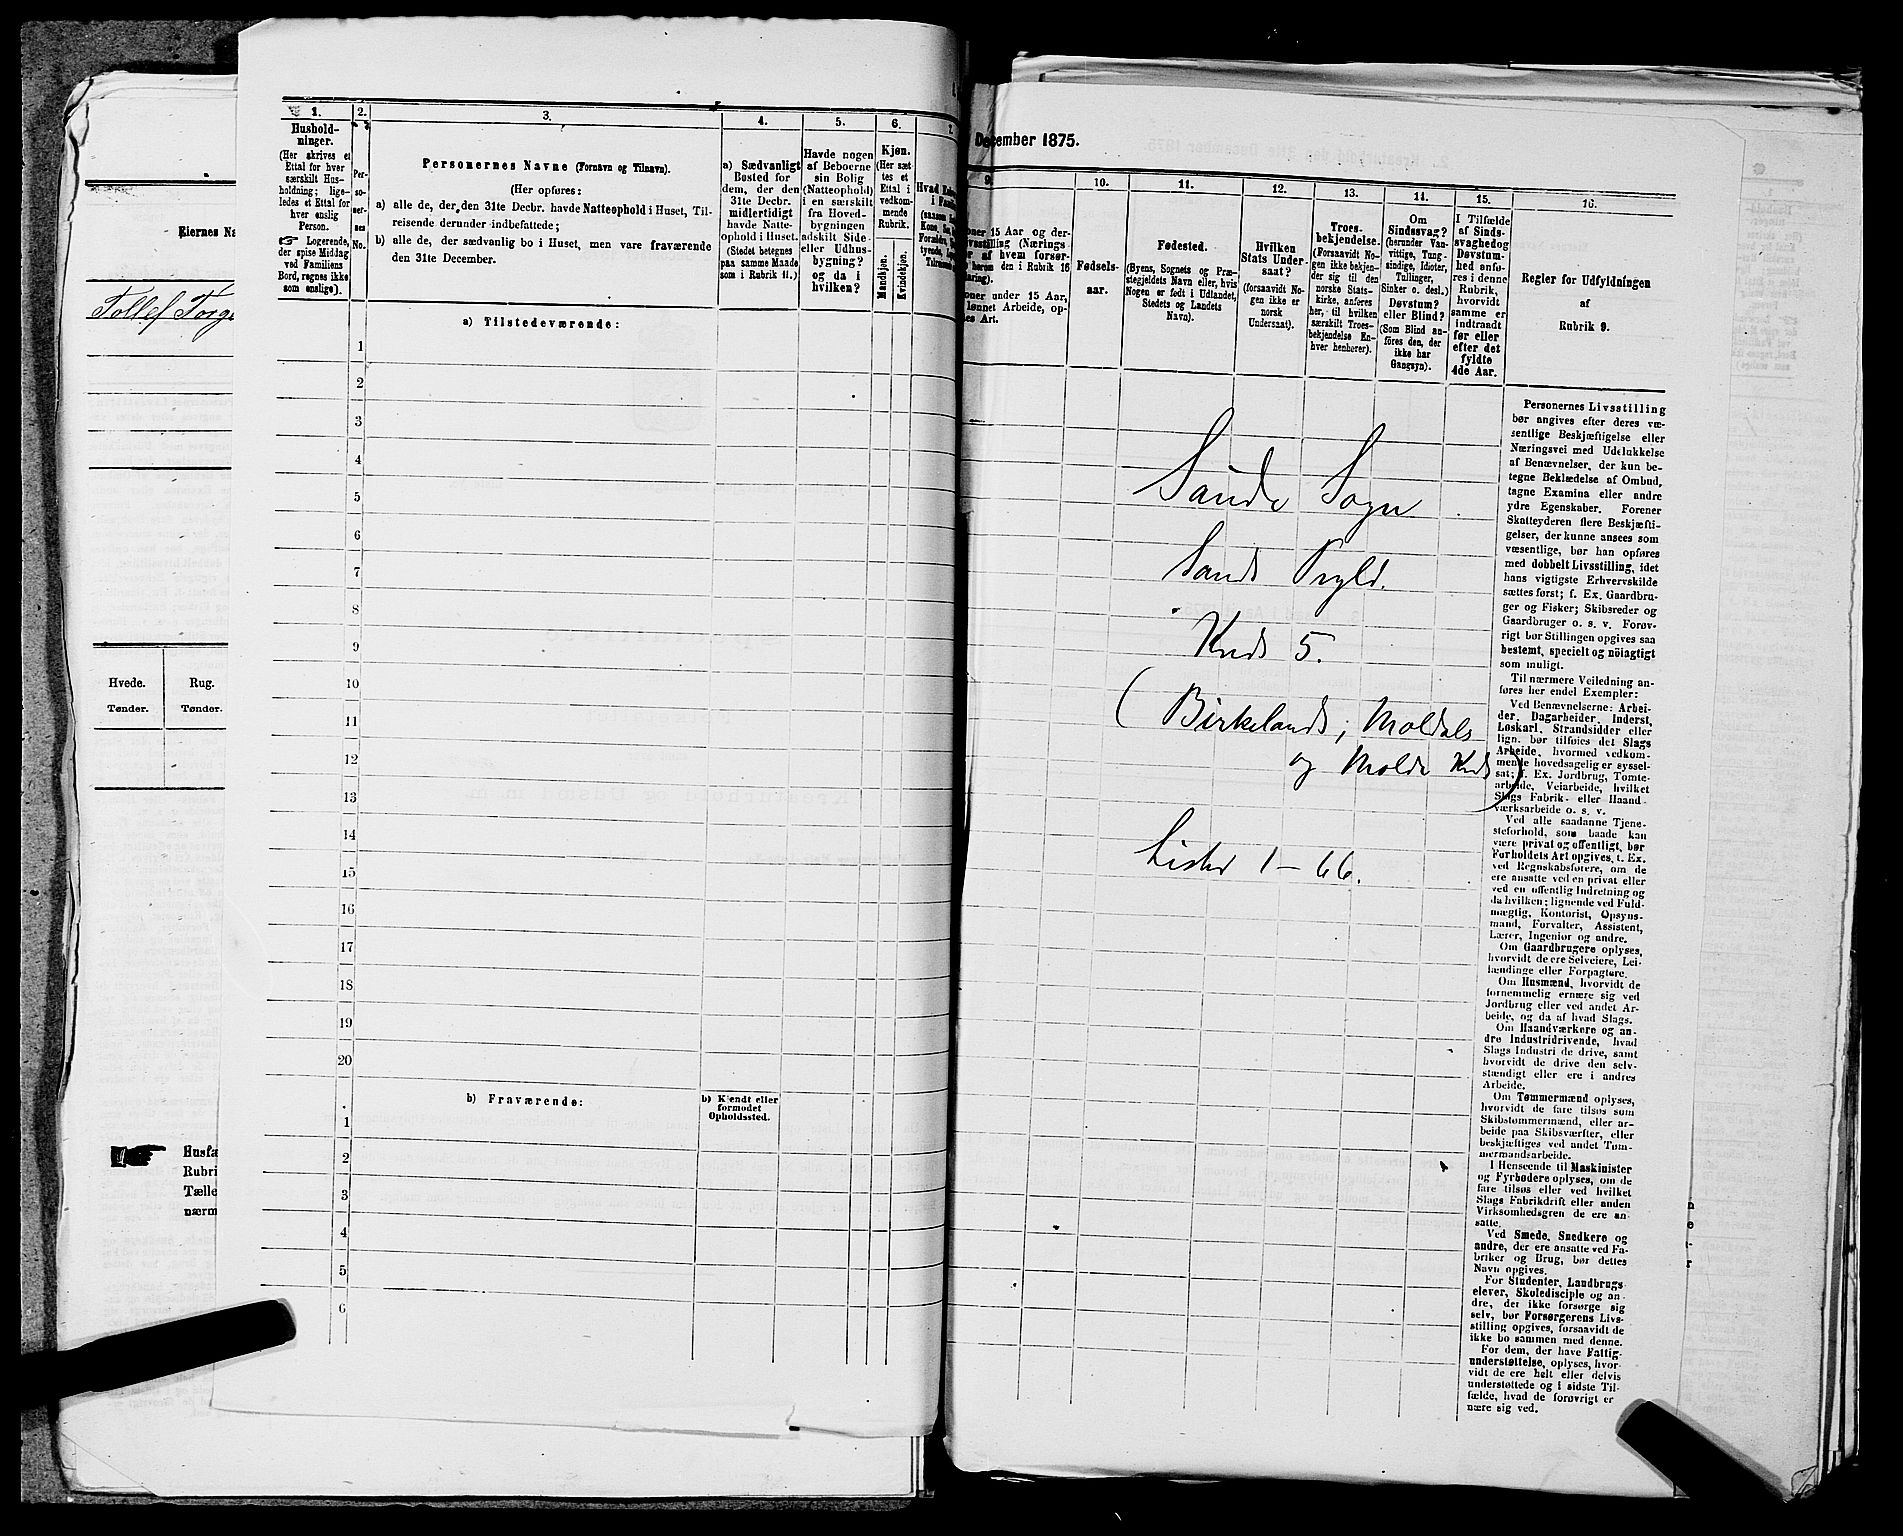 Eiernes Na
Tollef Torge
Hvede.
Tønder.
Rug.
Tønder.
Husfæ
Rubri
Tælle
nærm
1.
Hushold-
ninger.
(Her skrives et
Ettal for hver
særskilt Hus-
holdning; lige-
ledes et Ettal for
hver enslig
Person.
☞ Logerende,
der spise Middag
ved Familiens
Bord, regnes ikke
som enslige).
2.
Per-
so-
ner-
nes
No.
3.
Personernes Navne (Fornavn og Tilnavn).
(Her opføres:
a) alle de, der den 31te Decbr. havde Natteophold i Huset, Til-
reisende derunder indbefattede;
b) alle de, der sædvanlig bo i Huset, men vare fraværende
den 31te December.
4.
a) Sædvanligt
Bosted for
dem, der den
31te Decbr.
midlertidigt
havde Natte-
ophold i Huset.
(Stedet betegnes
paa samme Maade
som i Rubrik 11.)
5.
Havde nogen
af Beboerne
sin Bolig
(Natteophold)
i en særskilt
fra Hoved-
bygningen
adskilt Side-
eller Udhus-
bygning?
og da i
hvilken?
6.
Kjøn.
(Her sæt-
tes et
Ettal i
vedkom-
mende
Rubrik.
Mandkjøn.
Kvindekjøn.
7.
a) Tilstedeværende:
1
2
3
4
5
6
7
8
9
10
11
12
13
14
15
16
17
18
19
20
b) Fraværende:
b) Kjendt eller
formodet
Opholdssted.
1
2
3
4
5
6
December 1875.
9.
oner 15 Aar og der-
ivsstilling (Nærings
er af hvem forsør-
den i Rubrik 16
laring).
oner under 15 Aar,
lønnet Arbeide, op-
es Art.
10.
Fødsels-
aar.
11.
Fødested.
(Byens, Sognets og Præ-
stegjeldets Navn eller, hvis
Nogen er født i Udlandet,
Stedets og Landets
Navn).
12.
Hvilken
Stats Under-
saat?
(forsaavidt No-
gen ikke er
norsk
Undersaat).
13.
Troes-
bekjendelse.
(Forsaavidt No-
gen ikke bekjen-
der sig til den
norske Stats-
kirke, anføres
her, til hvilken
særskilt Troes-
bekjendelse En-
hver henhører).
14.
Om
Sindssvag?
(herunder Van-
vittige, Tung-
sindige, Idioter,
Tullinger,
Sinker o. desl.)
Døvstum?
eller Blind?
(Som Blind an-
føres den, der
ikke har
Gangsyn).
15.
I Tilfælde
af Sinds-
svaghed og
Døvstum-
hed anfø-
res i denne
Rubrik,
hvorvidt
samme er
indtraadt
før eller
efter det
fyldte
4de Aar.
16.
Regler for Udfyldningen
af
Rubrik 9.
Sande Sogn
Sands Prgld.
Kreds 5.
(Birkelands, Moldals
og Molde Kreds)
Lister 1-66.
Personernes Livsstilling
bør angives efter deres væ-
sentlige Beskjæftigelse eller
Næringsvei med Udelukkelse
af Benævnelser, der kun be-
tegne Beklædelse af Ombud,
tagne Examina eller andre
ydre Egenskaber. Forener
Skatteyderen flere Beskjæfti-
gelser, der kunne ansees som
væsentlige, bør han opføres
med dobbelt Livsstilling, idet
hans vigtigste Erhvervskilde
sættes først; f. Ex. Gaardbru-
ger og Fisker; Skibsreder og
Gaardbruger o. s. v. Forøv-
rigt bør Stillingen opgives saa
bestemt, specielt og nöiagtigt
som muligt.
Til nærmere Veiledning an-
føres her endel Exempler:
Ved Benævnelserne: Arbei-
der, Dagarbeider, Inderst,
Løskarl, Strandsidder eller
lign. bør tilføies det Slags
Arbeide, hvormed vedkom-
mende hovedsagelig er syssel-
sat; f. Ex. Jordbrug, Tomte-
arbeide, Veiarbeide, hvilket
Slags Fabrik- eller Haand-
værksarbeide o. s. v.
Ved alle saadanne Tjene-
steforhold, som baade kan
være privat og offentligt, bør
Forholdets Art opgives, t. Ex.
ved Regnskabsførere, om de
ere ansatte ved en privat eller
ved en offentlig Indretning og
da hvilken; lignende ved Fuld-
mægtig, Kontorist, Opsyns-
mand, Forvalter, Assistent,
Lærer, Ingeniør og andre.
Om Gaardbrugere oplyses,
hvorvidt de ere Selveiere, Lei-
lændinge eller Forpagtere.
Om Husmænd, hvorvidt de
fornemmelig ernære sig ved
Jordbrug eller ved andet Ar-
beide, og da af hvad Slags.
Om Haandværkere og an-
dre Industridrivende, hvad
Slags Industri de drive, samt
hvorvidt de drive den selv-
stændigt eller ere i andres
Arbeide.
Om Tømmermænd oplyses,
hvorvidt de fare tilsøs som
Skibstømmermænd, eller ar-
beide paa Skibsværfter, eller
beskjæftiges ved andet Tøm-
mermandsarbeide.
I Henseende til Maskinister
og Fyrbødere oplyses, om de
fare tilsøs eller ved hvilket
Slags Fabrikdrift eller anden
Virksomhedsgren de ere an-
satte.
Ved Smede, Snedkere og
andre, der ere ansatte ved Fa-
briker og Brug, bør dettes
Navn opgives.
For Studenter, Landbrugs-
elever, Skoledisciple og an-
dre, der ikke forsørge sig
selv, bør Forsørgerens Livs-
stilling opgives, forsaavidt de
ikke bo sammen med denne.
For dem, der have Fattig-
understøttelse, oplyses, hvor-
vidt de ere helt eller delvis
understøttede og i sidste Til-
fælde, hvad de forøvrigt er
nære sig ved.